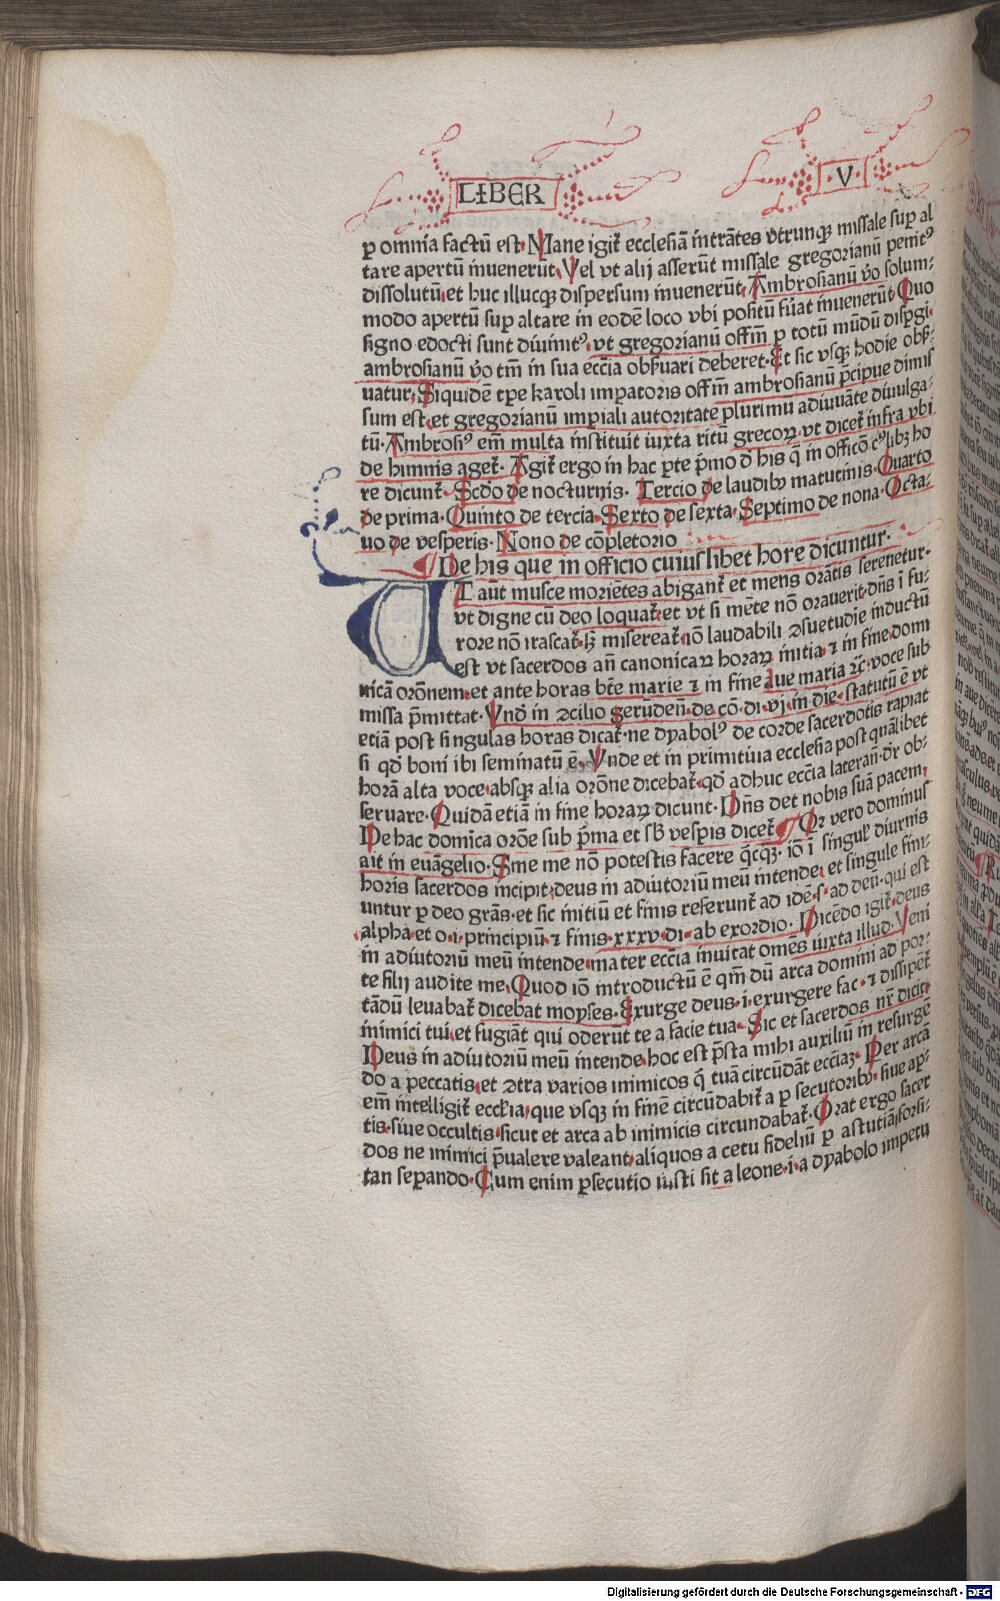 LIBER ·V·
ꝑ omnia factū est· Mane igit᷑ ecclesiā intrātes vtrunqꝫ missale suꝑ al
tare apertū inuenerūt· Vel vt alij asserūt missale gregorianū penitꝰ
dissolutū·et huc illucqꝫ dispersum inuenerūt· Ambrosianū v̄o solum-
modo apertū suꝑ altare in eodē loco vbi positū fu᷑at inuenerūt· Quo
signo edocti sunt diuinitꝰ· vt gregorianū offm̄ ꝑ totū mūdū disꝑgi
ambrosianū v̄o tm̄ in sua ecc̄ia obẜuari deberet· Et sic vsqꝫ hodie obẜ-
uatur· Siquidē tꝑe karoli imꝑatoris offm̄ ambrosianū p̄cipue dimis
sum est·et gregorianū imꝑiali autoritate plurimū adiuuāte diuulga-
tū· Ambrosiꝰ em̄ multa instituit iuxta ritū grecoꝝ·vt dicet᷑ infra vbi
de himnis aget᷑· Agit᷑ ergo in hac ꝑte p̄mo d̄ his q̄ in officō cꝰlibꝫ ho
re dicunt᷑· Scdō de nocturnis· Tercio de laudibꝰ matutinis· Quarto
de prima· Quinto de tercia· Sexto de sexta· Septimo de nona· Octa-
uo de vesperis· Nono de cōpletorio
De his que in officio cuiuslibet hore dicuntur·
UT aūt musce moriētes abigant᷑ et mens orātis serenetur·
vt digne cū deo loquat᷑·et vt si mēte nō orauerit·dn̄s ī fu-
rore nō irascat᷑·sꝫ misereat᷑·iō laudabili ꝯsuetudīe inductū
est vt sacerdos an̄ canonicaꝝ horaꝝ initia·⁊ in fine·domi
nicā orōnem·et ante horas bt̄e marie ⁊ in fine Aue maria ꝛc̄·voce sub
missa p̄mittat· Vnd̄ in ꝯcilio gerūden̄·de cō·di·vj·in die·statutū ē vt
etiā post singulas horas dicat᷑·ne dyabolꝰ de corde sacerdotis rapiat
si qd̄ boni ibi seminatū ē· Vnde et in primitiua ecclesia post quālibet
horā alta voce·absqꝫ alia orōne dicebat᷑·qd̄ adhuc ecc̄ia laterań·dr̄ ob-
seruare· Quidā etiā in fine horaꝝ dicunt· Dn̄s det nobis suā pacem·
De hac domīca orōe sub p̄ma et sb̄ vesꝑis dicet᷑· Qꝛ vero dominus
ait in euāgelio· Sine me nō potestis facere q̄cqꝫ· iō ī singul᷑ diurnis
horis sacerdos incipit·deus in adiutoriū meū intende·et singule fini-
untur ꝑ deo grās·et sic initiū et finis referunt᷑ ad idē·s·ad deū·qui est
alpha·et o·i·principiū·⁊ finis·xxxv·di·ab exordio· Dicēdo igit᷑·deus
in adiutoriū meū intende·mater ecc̄ia inuitat omēs iuxta illud· Veni
te filij audite me· Quod iō introductū ē qm̄ dū arca domini ad por-
tādū leuabat᷑ dicebat moyses· Exurge deus·i·exurgere fac·⁊ dissipēt᷑
inimici tui·et fugiāt qui oderūt te a facie tua· Sic et sacerdos nr̄ dicit·
Deus in adiutoriū meū intende·hoc est p̄sta mihi auxiliū in resurgē
do a peccatis·et ꝯtra varios inimicos q̄ tuā circūdāt ecc̄iaꝫ· Per arcā
em̄ intelligit᷑ ecclesia·que vsqꝫ in finē circūdabit᷑ a ꝑsecutoribꝰ·siue aꝑ-
tis·siue occultis·sicut et arca ab inimicis circundabat᷑· Orat ergo sacer
dos ne inimici p̄ualere valeant·aliquos a cetu fideliū ꝑ astutiā·forsi-
tan seꝑando· Cum enim ꝑsecutio iusti sit a leone·i·a dyabolo impetu
Digitalisierung gefördert durch die Deutsche Forschungsgemeinschaft - DFG